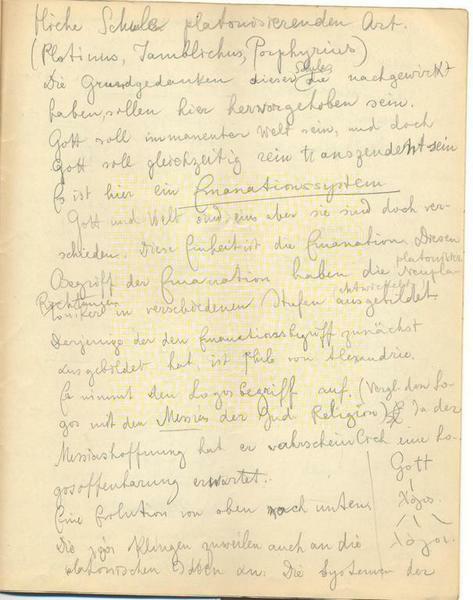 liche Schule platonisierenden Art.
(Plotinus, Jamblichus, Porphyrius)
Die Grundgedanken dieser Schule die nachgewirkt
haben, sollen hier hervorgehoben sein.
Gott soll immanenter Welt sein, und doch
Gott soll gleichzeitig rein transzendent sein
Es ist hier ein Emanationssystem
Gott und Welt sind eins aber sie sind doch ver-
schieden. Diese Einheit ist die Emanation. Diesen
Begriff der Emanation haben die Neupla-
in verschiedenen Stufen ausgebildet
Derjenige der den Emanationsbegriff zunächst
ausgebildet hat, ist Philo von Alexandrie.
Er nimmt den Logosbegriff auf. (Vergl. den Lo-
gos mit dem Messias der Jud Religion) In der
Messiashoffnung hat er wahrscheinlich eine Lo-
gosoffenbarung erwartet.
Gott
Eine Evolution von oben nach unten
λόγος
Die λόγοι klingen zuweilen auch an die
λόγοι
platonischen Ideen an. Die Systemen der